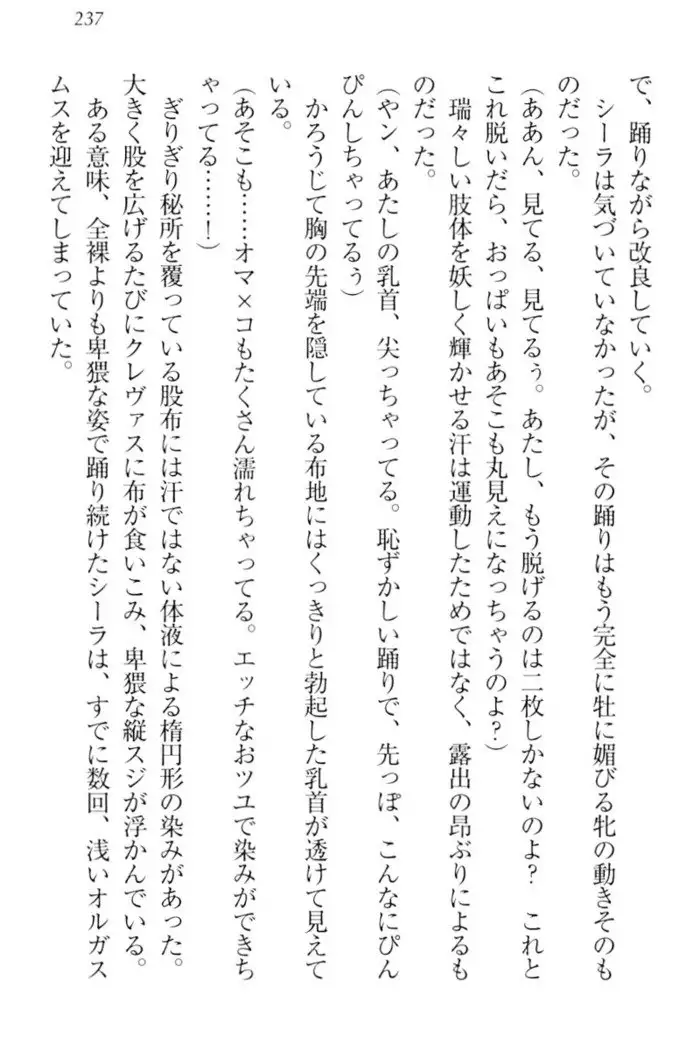 237
で、踊りながら改良していく。
　シーラは気づいていなかったが、その踊りはもう完全に牡に媚びる牝の動きそのも
のだった。
（ああん、見てる、見てるぅ。あたし、もう脱げるのは二枚しかないのよ？　これと
これ脱いだら、おっぱいもあそこも丸見えになっちゃうのよ？）
　瑞々しい肢体を妖しく輝かせる汗は運動したためではなく、露出の昂ぶりによるも
のだった。
（やン、あたしの乳首、尖っちゃってる。恥ずかしい踊りで、先っぽ、こんなにぴん
ぴんしちゃってるぅ）
　かろうじて胸の先端を隠している布地にはくっきりと勃起した乳首が透けて見えて
いる。
（あそこも……オマ×コもたくさん濡れちゃってる。エッチなおツユで染みができち
ゃってる……！）
　ぎりぎり秘所を覆っている股布には汗ではない体液による楕円形の染みがあった。
大きく股を広げるたびにクレヴァスに布が食いこみ、卑猥な縦スジが浮かんでいる。
　ある意味、全裸よりも卑猥な姿で踊り続けたシーラは、すでに数回、浅いオルガス
ムスを迎えてしまっていた。